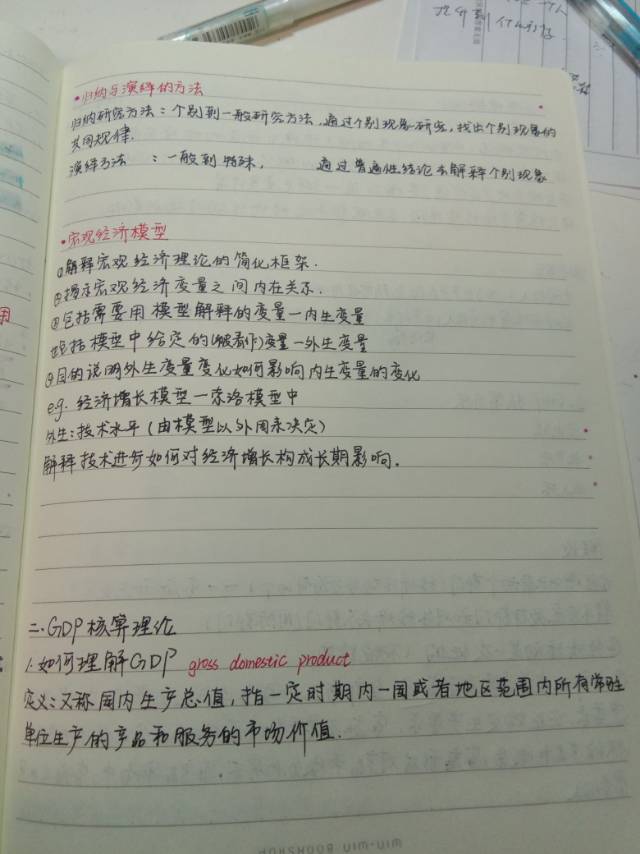 •归纳与演绎的方法
归纳研究方法：个别到一般研究方法，通过个别现象研究，找出个别现象的
共同规律.
演绎方法 ：一般到特殊， 通过普遍性结论去解释个别现象
•宏观经济模型
①解释宏观经济理论的简化框架.
②揭示宏观经济变量之间内在关系.
③包括需要用模型解释的变量—内生变量
包括模型中给定的(被看作)变量—外生变量
④目的说明外生变量变化如何影响内生变量的变化
eg. 经济增长模型—索洛模型中
外生：技术水平(由模型以外因素决定)
解释技术进步如何对经济增长构成长期影响.
二.GDP核算理论
1.如何理解GDP gross domestic product
定义：又称国内生产总值，指一定时期内一国或者地区范围内所有常驻
单位生产的产品和服务的市场价值.